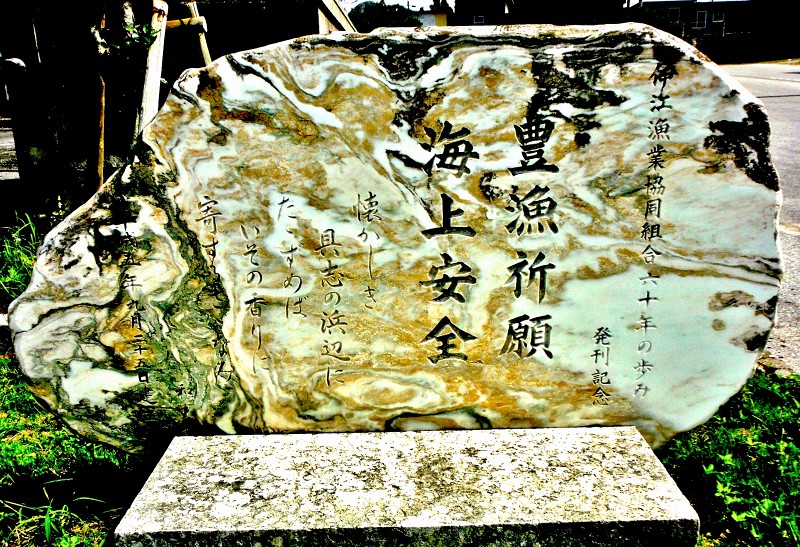 伊江漁業協同組合六十年の歩み
発刊記念
豊漁祈願
海上安全
懐かしき
具志の浜辺に
たたずめば
いその香りに
寄する